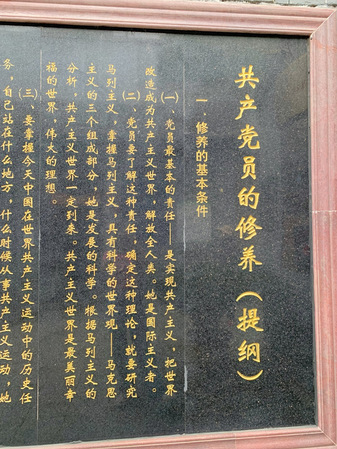 共产党员的修养（提纲）
一．修养的基本条件
（一）党员最基本的责任——是实现共产主义，把世界
改造成为共产主义世界，解放全人类。她是国际主义者。
（二）党员要了解这种责任，确定这种理论，就要研究
马列主义，掌握马列主义，具有科学的世界观——马克思
主义的三个组成部分，她是发展的科学。根据马列主义的
分析，共产主义世界一定到来。共产主义世界是最美丽幸
福的世界，伟大的理想。
（三）、要掌握今天中国在世界共产主义运动中的历史任
务，自己站在什么地方，什么时候从事共产主义运动，她